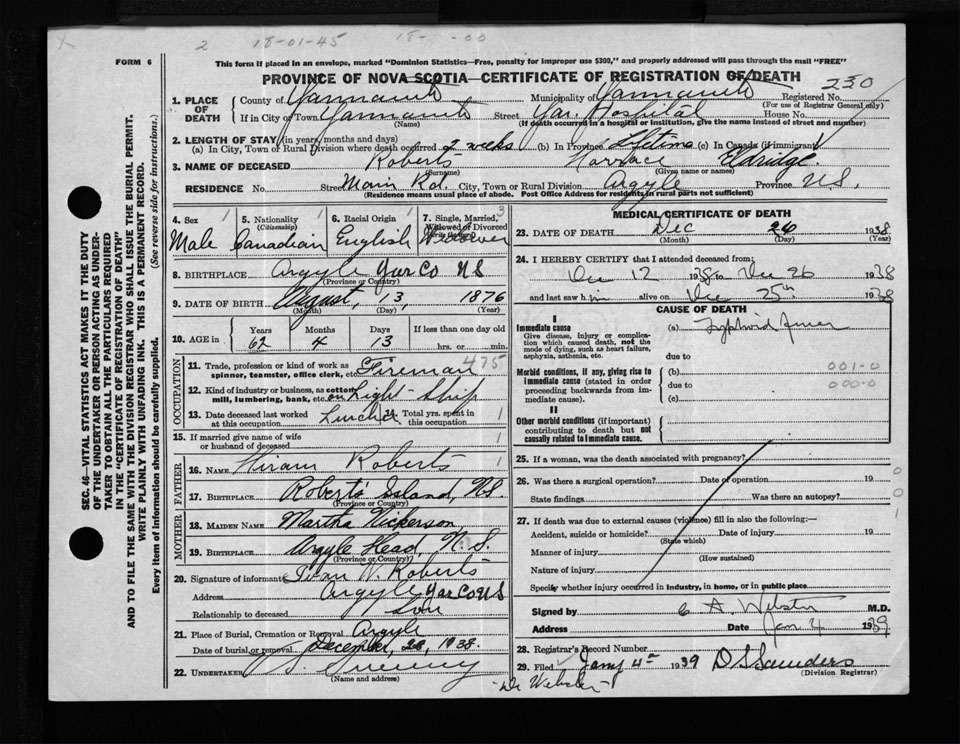 2 18-01-45 18- -00
FORM 6
This form if placed in an envelope, marked "Dominion Statistics—Free, penalty for improper use $300," and properly addressed will pass through the mail "FREE"
PROVINCE OF NOVA SCOTIA—CERTIFICATE OF REGISTRATION OF DEATH
230
1. PLACE OF DEATH County of Yarmouth Municipality of Yarmouth Registered No.
(For use of Registrar General only)
If in City or Town Yarmouth Street Yar. Hospital House No.
(Name) (If death occurred in a hospital or institution, give the name instead of street and number)
2. LENGTH OF STAY (in years, months and days)
(a) In City, Town or Rural Division where death occurred 2 weeks (b) In Province Lifetime (c) In Canada (if immigrant)
3. NAME OF DECEASED Roberts Horrace Eldridge
(Surname) (Given name or names)
RESIDENCE No. Street Main Rd. City, Town or Rural Division Argyle Province N.S.
(Residence means usual place of abode. Post Office Address for residents in rural parts not sufficient)
4. Sex 1 5. Nationality 1 6. Racial Origin 1 7. Single, Married, 3
(Citizenship) Widowed or Divorced
(write the word)
Male Canadian English Widower
8. BIRTHPLACE Argyle Yar Co NS
(Province or Country)
9. DATE OF BIRTH August, 13, 1876
(Month) (Day) (Year)
10. AGE in Years Months Days If less than one day old
62 4 13 hrs. or min.
OCCUPATION
11. Trade, profession or kind of work as spinner, teamster, office clerk, etc. Fireman 475
12. Kind of industry or business, as cotton mill, lumbering, bank, etc. on Light Ship
13. Date deceased last worked at this occupation Lurcher 14. Total yrs. spent in this occupation 1
15. If married give name of wife or husband of deceased 1
FATHER
16. NAME Hiram Roberts 1
17. BIRTHPLACE Roberts Island, N.S.
(Province or Country)
MOTHER
18. MAIDEN NAME Martha Nickerson
19. BIRTHPLACE Argyle Head, N.S.
(Province or Country)
20. Signature of informant Ivan N. Roberts
Address Argyle Yar Co NS
Relationship to deceased Son
21. Place of Burial, Cremation or Removal Argyle
Date of burial or removal December, 28, 1938.
22. UNDERTAKER
(Name and address)
MEDICAL CERTIFICATE OF DEATH
23. DATE OF DEATH Dec 26 1938
(Month) (Day) (Year)
24. I HEREBY CERTIFY that I attended deceased from:
Dec 12 1938 to Dec 26 1938
and last saw him alive on Dec 25th 1938
CAUSE OF DEATH
I
Immediate cause (a) Typhoid fever
Give disease, injury or complication which caused death, not the mode of dying, such as heart failure, asphyxia, asthenia, etc.
due to
Morbid conditions, if any, giving rise to immediate cause (stated in order proceeding backwards from immediate cause).
(b) 001-0
due to 000-0
(c)
II
Other morbid conditions (if important) contributing to death but not causally related to immediate cause.
25. If a woman, was the death associated with pregnancy?
26. Was there a surgical operation? Date of operation 19 0
State findings Was there an autopsy? 0
1
27. If death was due to external causes (violence) fill in also the following:—
Accident, suicide or homicide? Date of injury 19
(State which)
Manner of injury
(How sustained)
Nature of injury
Specify whether injury occurred in industry, in home, or in public place
Signed by C A. Webster M.D.
Address Date Jan 4 1939
28. Registrar's Record Number
29. Filed Jany 4th 1939 D S Saunders
(Division Registrar)
Dr Webster
SEC. 46—VITAL STATISTICS ACT MAKES IT THE DUTY
OF THE UNDERTAKER OR PERSON ACTING AS UNDERTAKER TO OBTAIN ALL THE PARTICULARS REQUIRED
IN THE "CERTIFICATE OF REGISTRATION OF DEATH"
AND TO FILE THE SAME WITH THE DIVISION REGISTRAR WHO SHALL ISSUE THE BURIAL PERMIT.
WRITE PLAINLY WITH UNFADING INK. THIS IS A PERMANENT RECORD.
Every item of Information should be carefully supplied. (See reverse side for instructions.)